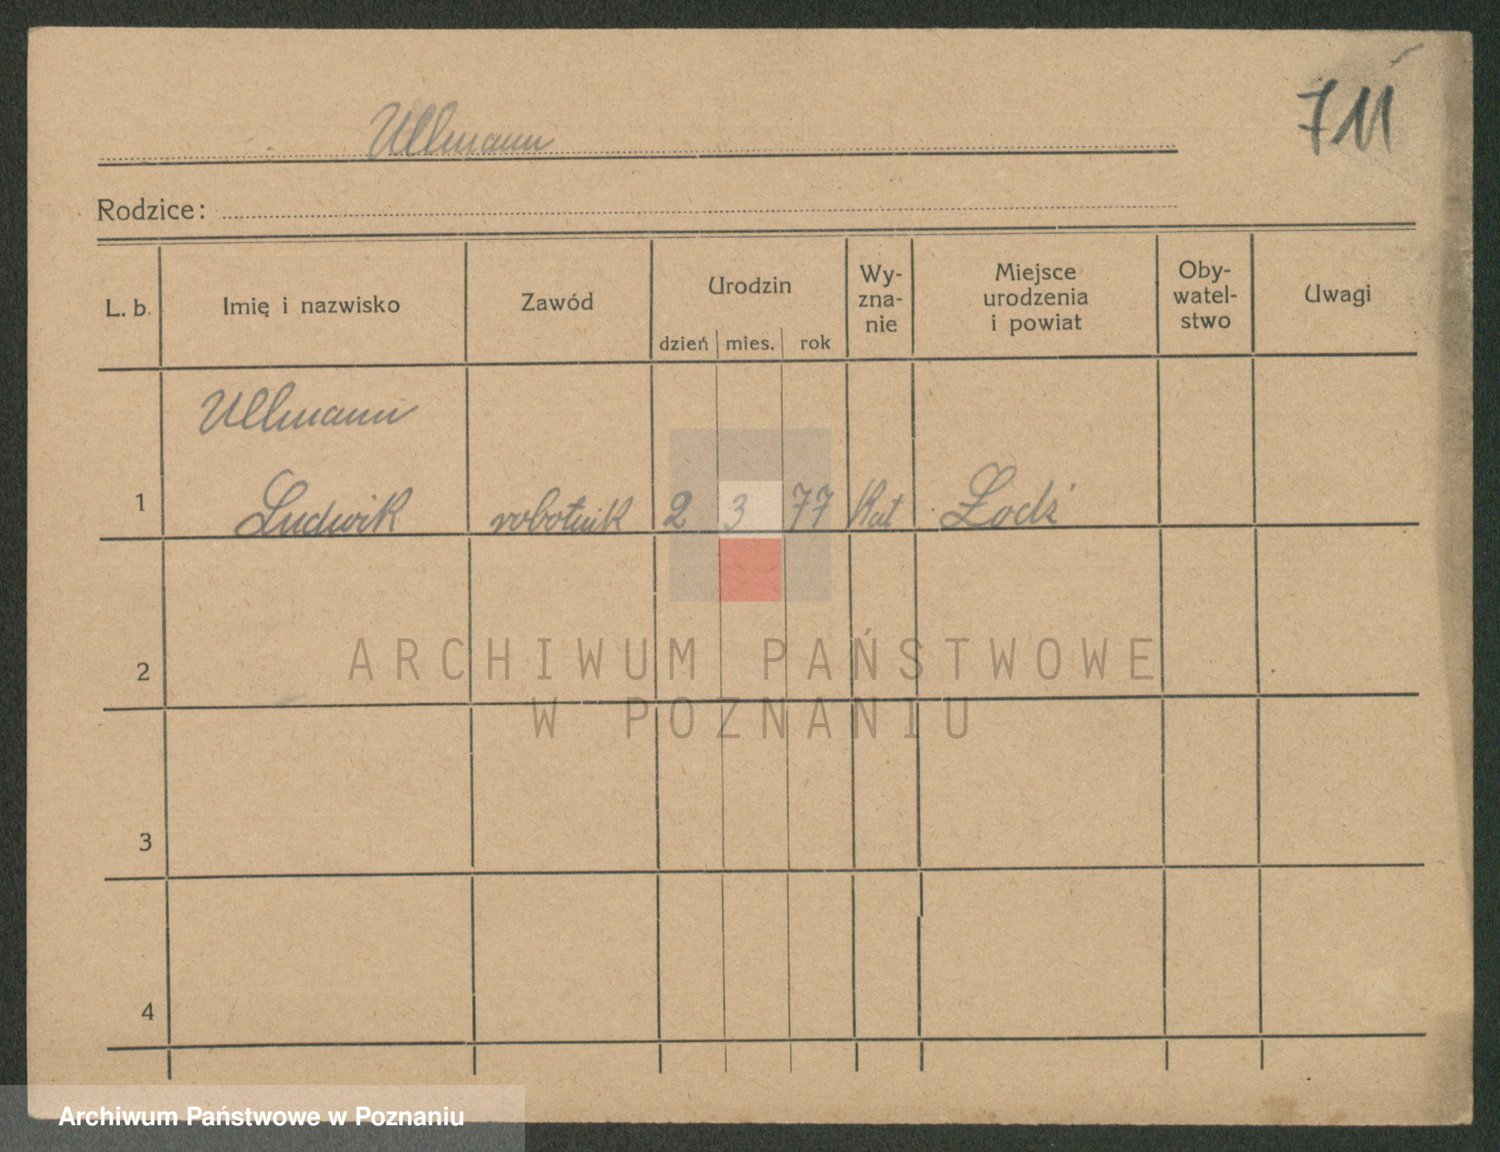 Ullmann
711
Rodzice:
L. b. Imię i nazwisko Zawód Urodzin Wy-zna-nie Miejsce urodzenia i powiat Oby-watel-stwo Uwagi
dzień mies. rok
Ullmann
1 Ludwik robotnik 2 3 77 Kat Łodź
2
ARCHIWUM PAŃSTWOWE
W POZNANIU
3
4
Archiwum Państwowe w Poznaniu